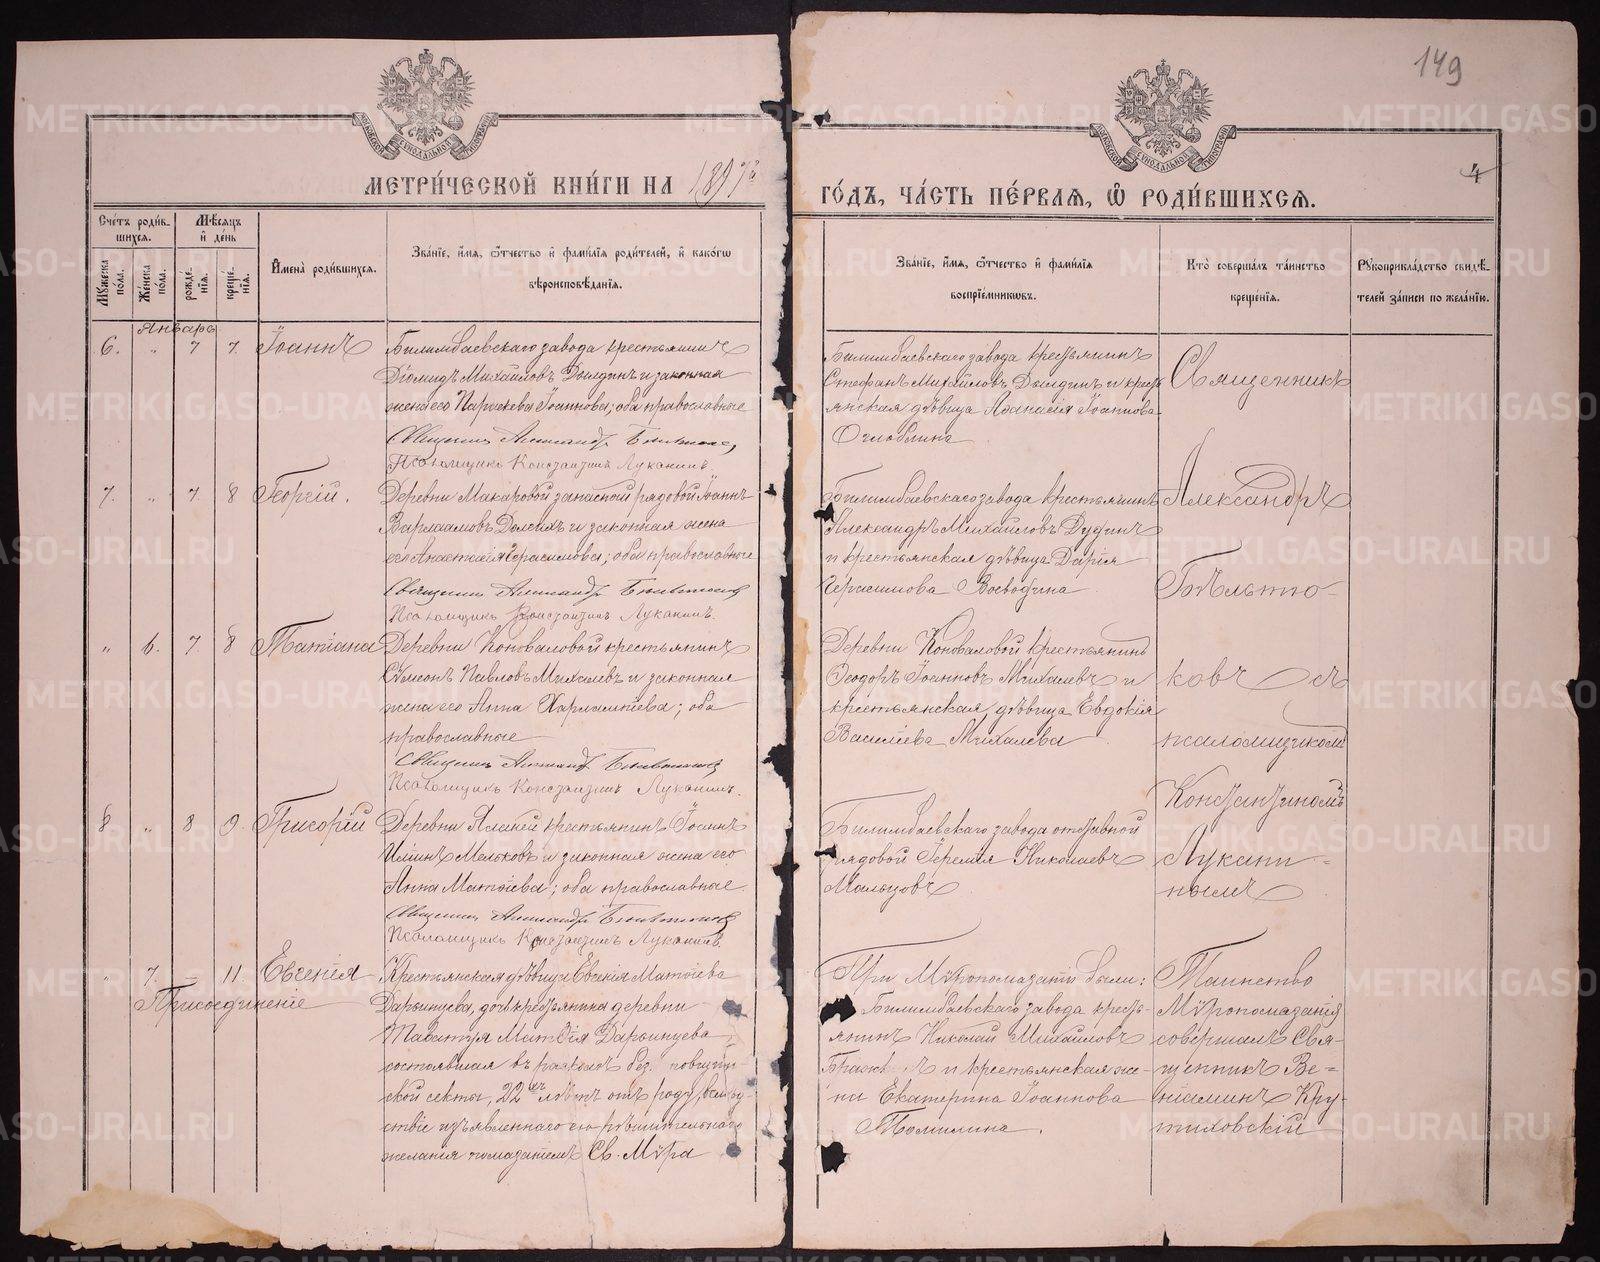 149
4
МЕТРИ́ЧЕСКОЙ КНИ́ГИ НА 1897й
ГО́ДЪ, ЧА́СТЬ ПЕ́РВАЯ, Ѡ РОДИ́ВШИХСЯ.
Сче́тъ роди́в-
шихся.
Мѣ́сяцъ
и҆ де́нь
Мꙋ́жеска по́ла.
Же́нска по́ла.
рожде́нїя.
креще́нїя.
И҆мена̀ роди́вшихся.
Зва́нїе, и҆́мя, ѻ҆́тчество и҆ фами́лїя роди́телей, и҆ како́гѡ
вѣроисповѣ́данїя.
Зва́нїе, и҆́мя, ѻ҆́тчество и҆ фами́лїя
воспрїе́мникѡвъ.
Кто̀ соверша́лъ та́инство
креще́нїя.
Рꙋкоприкла́дство свидѣ́-
телей за́писи по жела́нїю.
Январь
6. " 7 7. Іоаннъ
Билимбаевскаго завода крестьянинъ
Діомидъ Михайловъ Дылдинъ и законная
жена его Параскева Іоаннова; оба православные
Священникъ Александръ Бѣльтюковъ
Псаломщикъ Константинъ Луканинъ
Билимбаевскаго завода крестьянинъ
Стефанъ Михайловъ Дылдинъ и кресть
янская дѣвица Аѳанасія Іоаннова
Оглоблина
7. " 7. 8 Георгій.
Деревни Макаровой запасной рядовой Іоаннъ
Варлаамовъ Долгихъ и законная жена
его Анастасія Герасимова; оба православные
Священникъ Александръ Бѣльтюковъ
Псаломщикъ Константинъ Луканинъ.
Билимбаевскаго завода крестьянинъ
Александръ Михайловъ Дудинъ
и крестьянская дѣвица Дарія
Герасимова Воеводина
" 6. 7. 8 Татіана
Деревни Коноваловой крестьянинъ
Сѵмеонъ Павловъ Михалевъ и законная
жена его Анна Харлампіева; оба
православные
Священникъ Александръ Бѣльтюковъ
Псаломщикъ Константинъ Луканинъ.
Деревни Коноваловой крестьянинъ
Ѳеодоръ Іоанновъ Михалевъ и
крестьянская дѣвица Евдокія
Василіева Михалева
8 " 8 9. Григорій
Деревни Талицы крестьянинъ Іоаннъ
Иліинъ Мельковъ и законная жена его
Анна Матѳіева; оба православные.
Священникъ Александръ Бѣльтюковъ
Псаломщикъ Константинъ Луканинъ
Билимбаевскаго завода отставной
рядовой Іеремія Николаевъ
Мальцовъ
Священникъ
Александръ
Бѣльтю-
ковъ съ
псаломщикомъ
Константиномъ
Лукани-
нымъ
" 7. – 11 Евгенія
Присоединеніе
Крестьянская дѣвица Евгенія Матѳіева
Дарьинцева, дочь крестьянина деревни
Таватуя Матѳія Дарьинцева,
состоявшая въ расколѣ без.
ской секты, 22хъ лѣтъ отъ роду, вслѣд-
ствіе изъявленнаго ею рѣшительнаго
желанія помазаніемъ Св. Мѵра
При Мѵропомазаніи были:
Билимбаевскаго завода кресть-
янинъ Николай Михайловъ
и крестьянская же-
на Екатерина Іоаннова
Томилина.
Таинство
Мѵропомазанія
совершалъ Свя-
щенникъ Ве-
ніаминъ Кру-
тиховскій